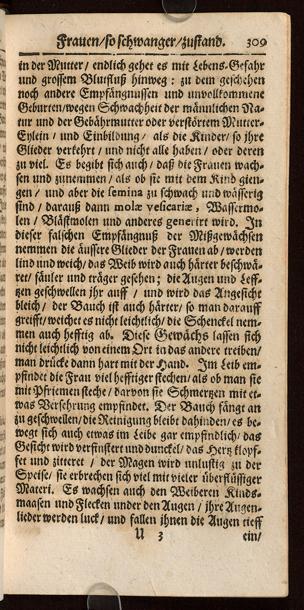 Frauen/ so schwanger/ zustand. 309
in der Mutter/ endlich gehet es mit Lebens-Gefahr
und grossem Blutfluß hinweg: zu dem geschehen
noch andere Empfängnussen und unvollkommene
Geburten/ wegen Schwachheit der männlichen Na-
tur und der Gebährmutter oder verstörtem Mutter-
Eylein/ und Einbildung/ als die Kinder/ so ihre
Glieder verkehrt/ und nicht alle haben/ oder deren
zu viel. Es begibt sich auch/ daß die Frauen wach-
sen und zunemmen/ als ob sie mit dem Kind gien-
gen/ und aber die semina zu schwach und wässerig
sind/ darauß dann molæ vesicariæ, Wassermo-
len/ Blästmolen und anderes generirt wird. In
dieser falschen Empfängnuß der Mißgewächsen
nemmen die äussere Glieder der Frauen ab/ werden
lind und weich/ das Weib wird auch härter beschwä-
ret/ fäuler und träger gesehen; die Augen und Leff-
zen geschwellen ihr auff/ und wird das Angesicht
bleich/ der Bauch ist auch härter/ so man darauff
greifft/ weichet es nicht leichtlich/ die Schenckel nem-
men auch hefftig ab. Diese Gewächs lassen sich
nicht leichtlich von einem Ort in das andere treiben/
man drücke dann hart mit der Hand. Im Leib em-
pfindet die Frau viel hefftiger stechen/ als ob man sie
mit Pfriemen steche/ darvon sie Schmertzen mit et-
was Versehrung empfindet. Der Bauch fängt an
zu geschwellen/ die Reinigung bleibt dahinden/ es be-
wegt sich auch etwas im Leibe gar empfindlich/ das
Gesicht wird verfinstert und dunckel/ das Hertz klopf-
fet und zitteret/ der Magen wird unlustig zu der
Speise/ sie erbrechen sich viel mit vieler überflüssiger
Materi. Es wachsen auch den Weiberen Kinds-
maasen und Flecken under den Augen/ ihre Augen-
lieder werden luck/ und fallen ihnen die Augen tieff
U 3 ein/